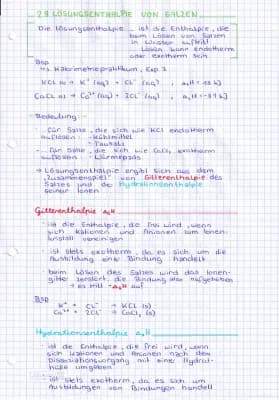 2.9 LÖSUNGSENTHALPIE VON SALZEN
Die Lösungsenthalpie ... ist die Enthalpie, die
beim Lösen von Salzen
in Wasser auftritt
Lösen kann endotherm
oder exotherm sein
Bsp
Kalorimetriepraktikum, Exp. 3
KCl (s) → K⁺ (aq) + Cl⁻ (aq)
CaCl₂ (s) → Ca²⁺ (aq) + 2Cl⁻ (aq)
Bedeutung
- für Salze, die sich wie KCl endotherm
auflösen: Kühlmittel
Tausalz
- für Salze, die sich wie CaCl₂ exotherm
auflösen: Wärmepads
→ Lösungsenthalpie ergibt sich aus dem
"Zusammenspiel" von Gitterenthalpie des
Salzes und der Hydrationsenthalpie
seiner Ionen
Gitterenthalpie
· ist die Enthalpie, die frei wird, wenn
sich Kationen und Anionen zum Ionen-
kristall vereinigen
· ist stets exotherm, da es sich um die
Ausbildung einer Bindung handelt
· beim Lösen des Salzes wird das Ionen-
gitter zerstört, die Bindung also aufgehoben
Bsp
K⁺ + Cl⁻ → KCl (s)
Ca²⁺ + 2Cl⁻ → CaCl₂ (s)
Hydrationsenthalpie
· ist die Enthalpie, die frei wird, wenn
sich Kationen und Anionen nach dem
Dissoziationsvorgang mit einer Hydrat-
hülle umgeben
· ist stets exotherm, da es sich um
Ausbildungen von Bindungen handelt